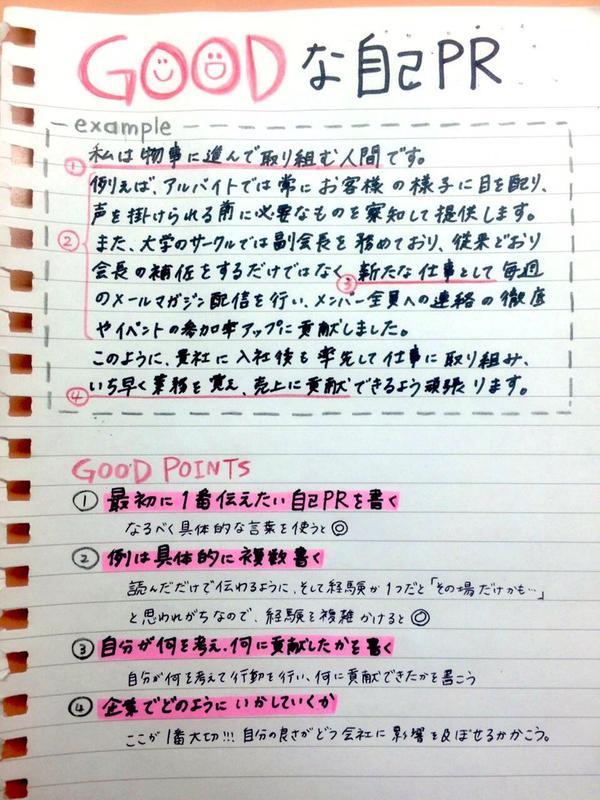 GOODな自己PR
example
① 私は物事に進んで取り組む人間です。
例えば、アルバイトでは常にお客様の様子に目を配り、
声を掛けられる前に必要なものを察知して提供します。
② また、大学のサークルでは副会長を務めており、従来どおり
会長の補佐をするだけではなく③新たな仕事として毎週
のメールマガジン配信を行い、メンバー全員への連絡の徹底
やイベントの参加率アップに貢献しました。
このように、貴社に入社後も率先して仕事に取り組み、
④ いち早く業務を覚え、売上に貢献できるよう頑張ります。
GOOD POINTS
① 最初に1番伝えたい自己PRを書く
なるべく具体的な言葉を使うと◎
② 例は具体的に複数書く
読んだだけで伝わるように、そして経験が1つだと「その場だけかも…」
と思われがちなので、経験を複雑かけると◎
③ 自分が何を考え、何に貢献したかを書く
自分が何を考えて行動を行い、何に貢献できたかを書こう
④ 企業でどのようにいかしていくか
ここが1番大切!!!自分の良さがどう会社に影響を及ぼせるかかこう。